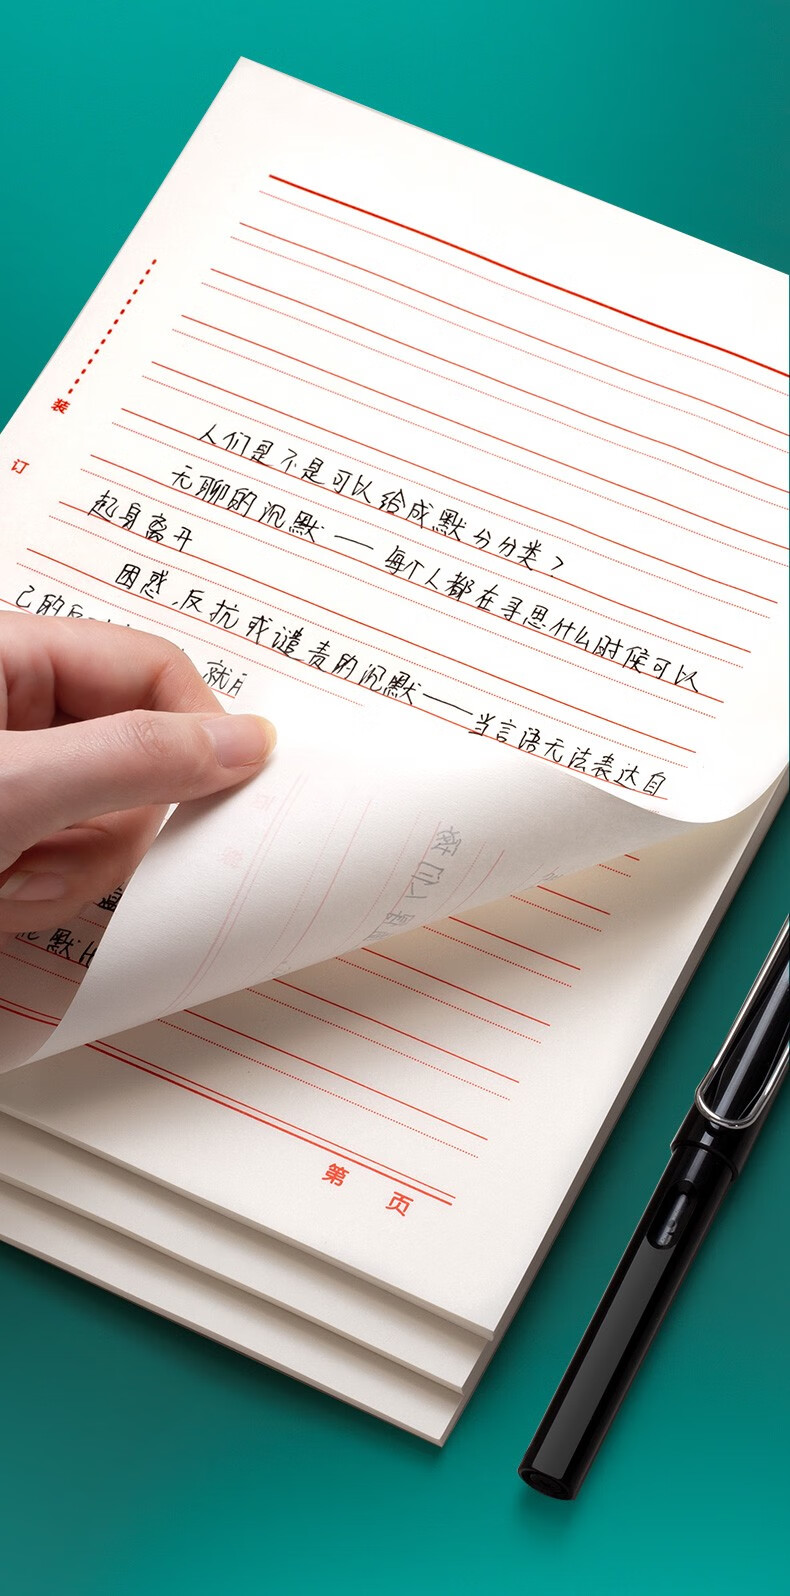 装
订
人们是不是可以给成默分分类?
无聊的沉默——每个人都在寻思什么时候可以
起身离开
困惑,反抗或谴责的沉默——当言语无法表达自
己的 就
默
第 页